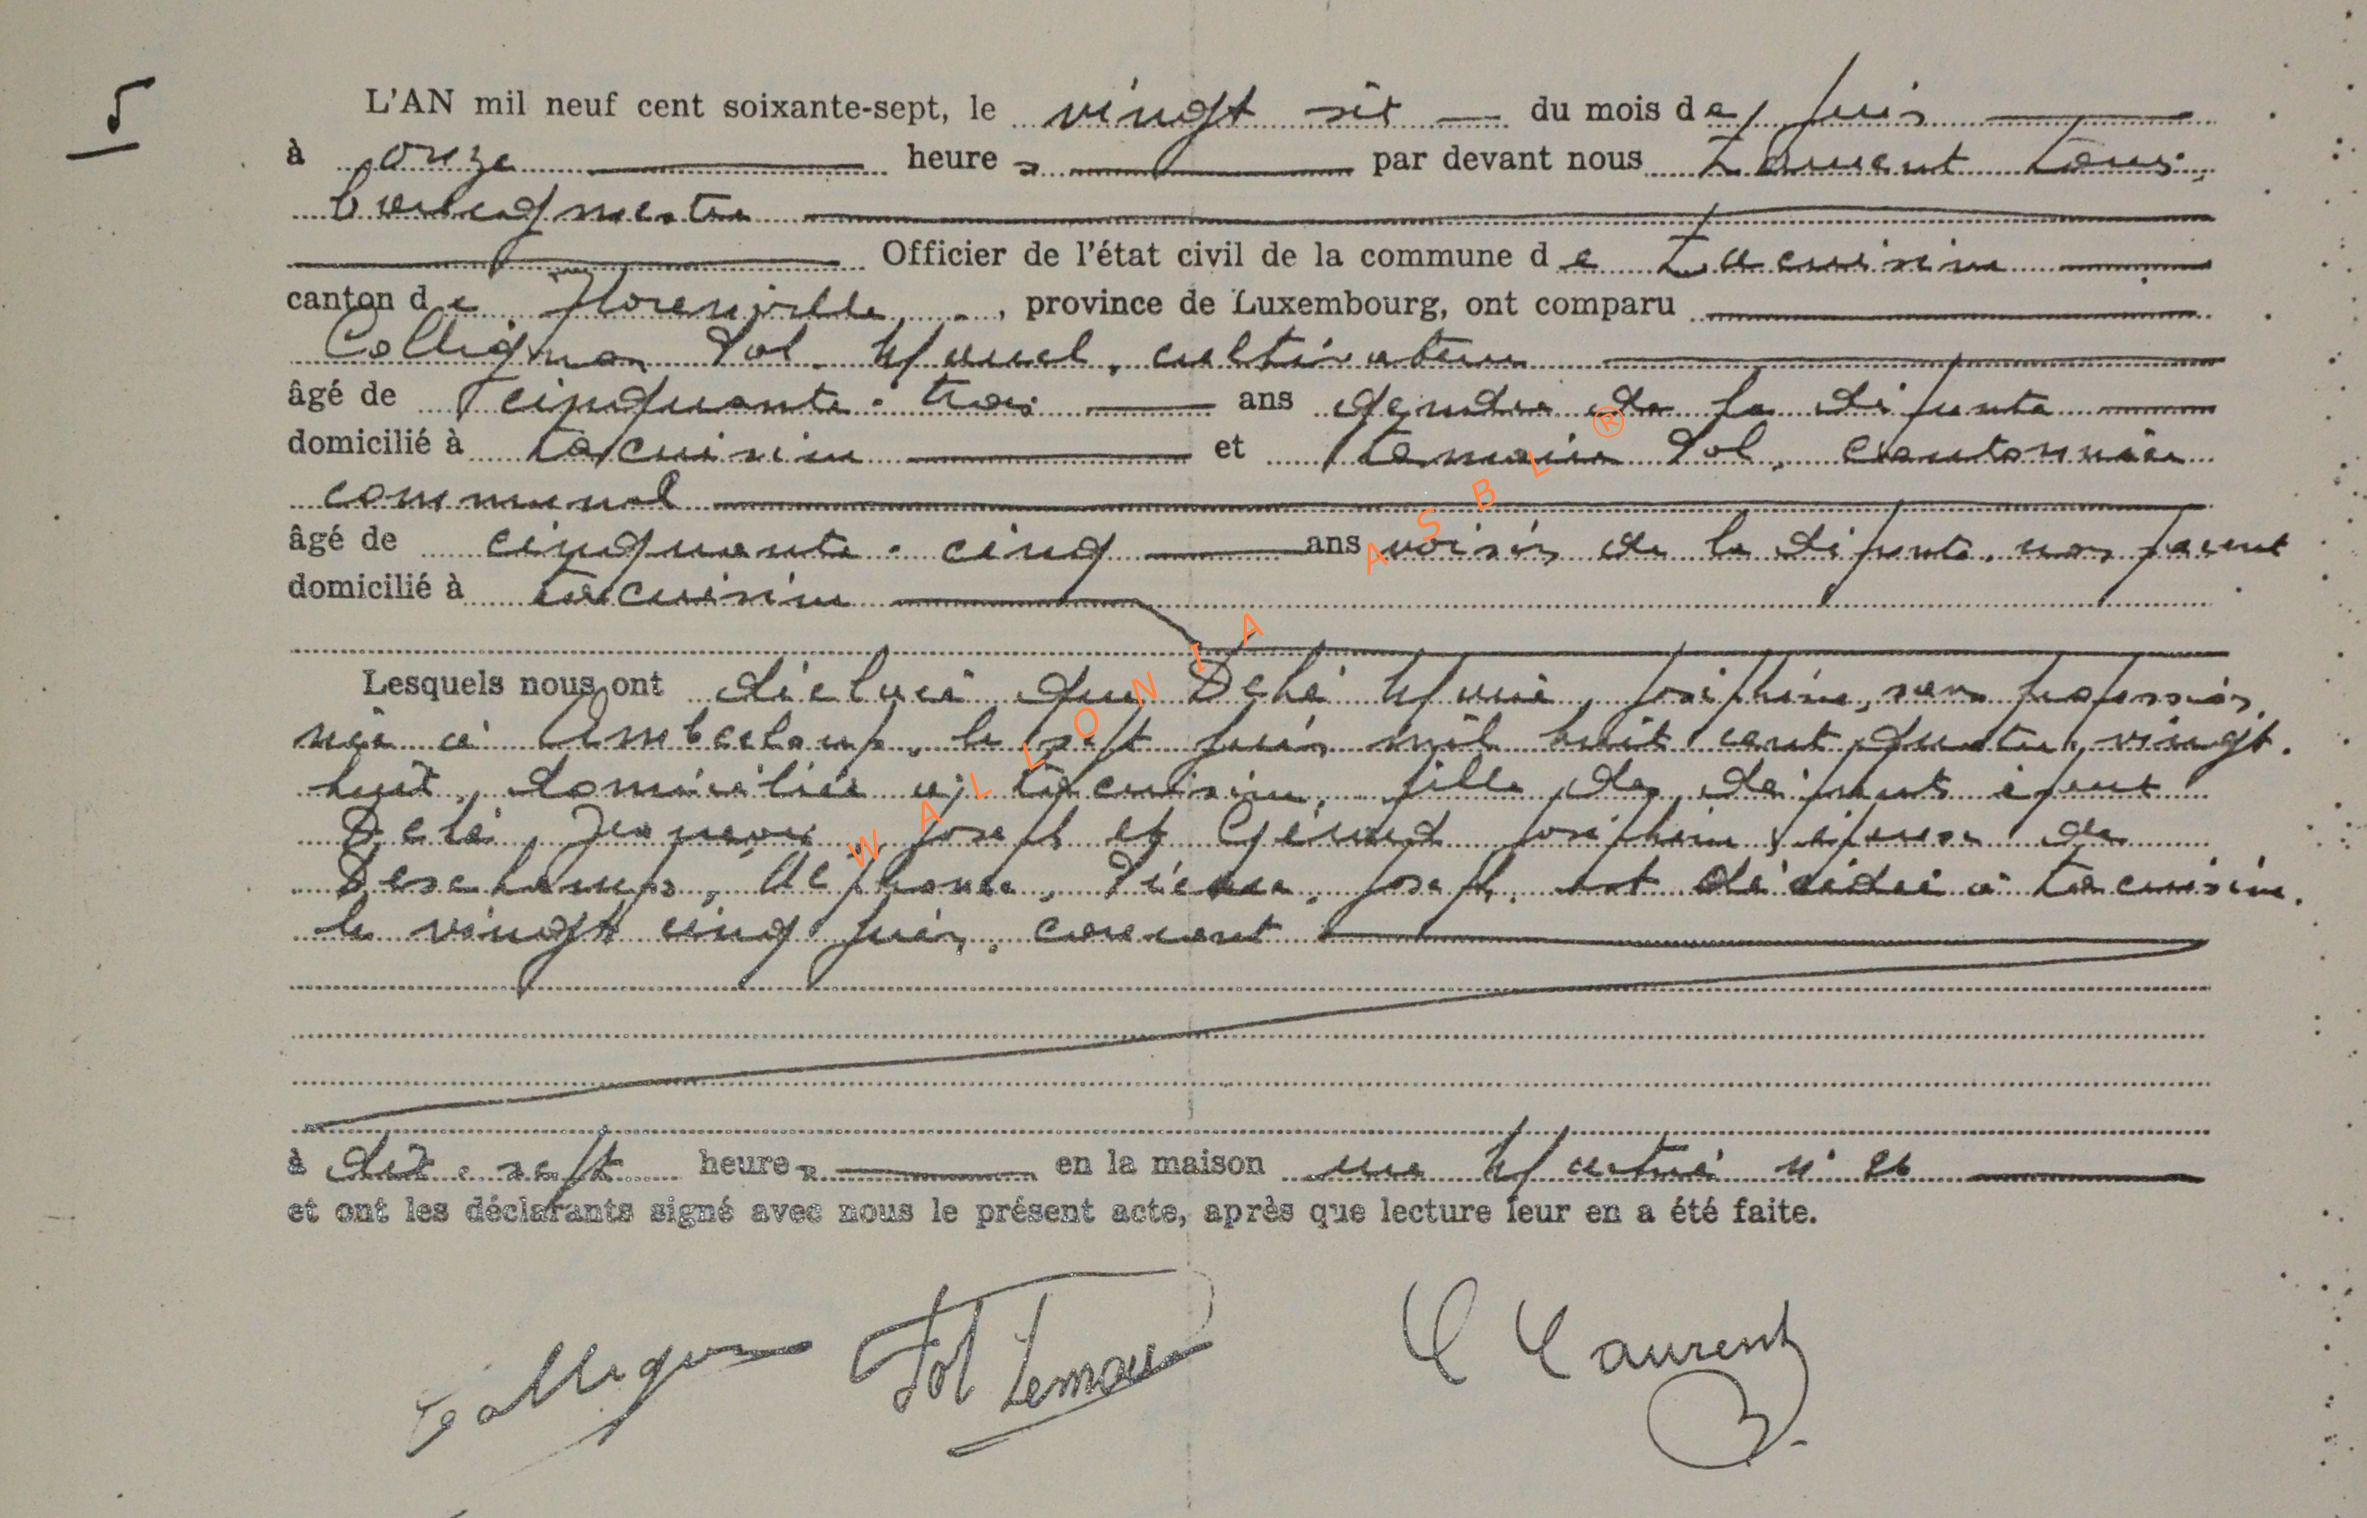 5
L'AN mil neuf cent soixante-sept, le vingt six du mois de juin
à onze heures par devant nous Laurent Louis,
bourgmestre
Officier de l'état civil de la commune de Lacuisine
canton de Florenville, province de Luxembourg, ont comparu
Collignon Marcel, cultivateur
âgé de cinquante-trois ans gendre de la défunte
domicilié à Lacuisine et Lemaire Sol, cantonnier
communal
âgé de cinquante-cinq ans voisin de la défunte, non parent
domicilié à Lacuisine
Lesquels nous ont déclaré que Dehé Marie, Joséphine, sans profession,
née à Amberloup, le sept juin mil huit cent quatre-vingt-
huit, domiciliée à Lacuisine, fille des défunts époux
Dehé, Joseph et Gérard Joséphine, épouse de
Deschamps, Alphonse, Joseph, est décédée à Lacuisine,
le vingt cinq juin, courant
à dix-sept heures en la maison rue n°
et ont les déclarants signé avec nous le présent acte, après que lecture leur en a été faite.
Collignon Lemaire L Laurent
WALLONIA ASBL ®